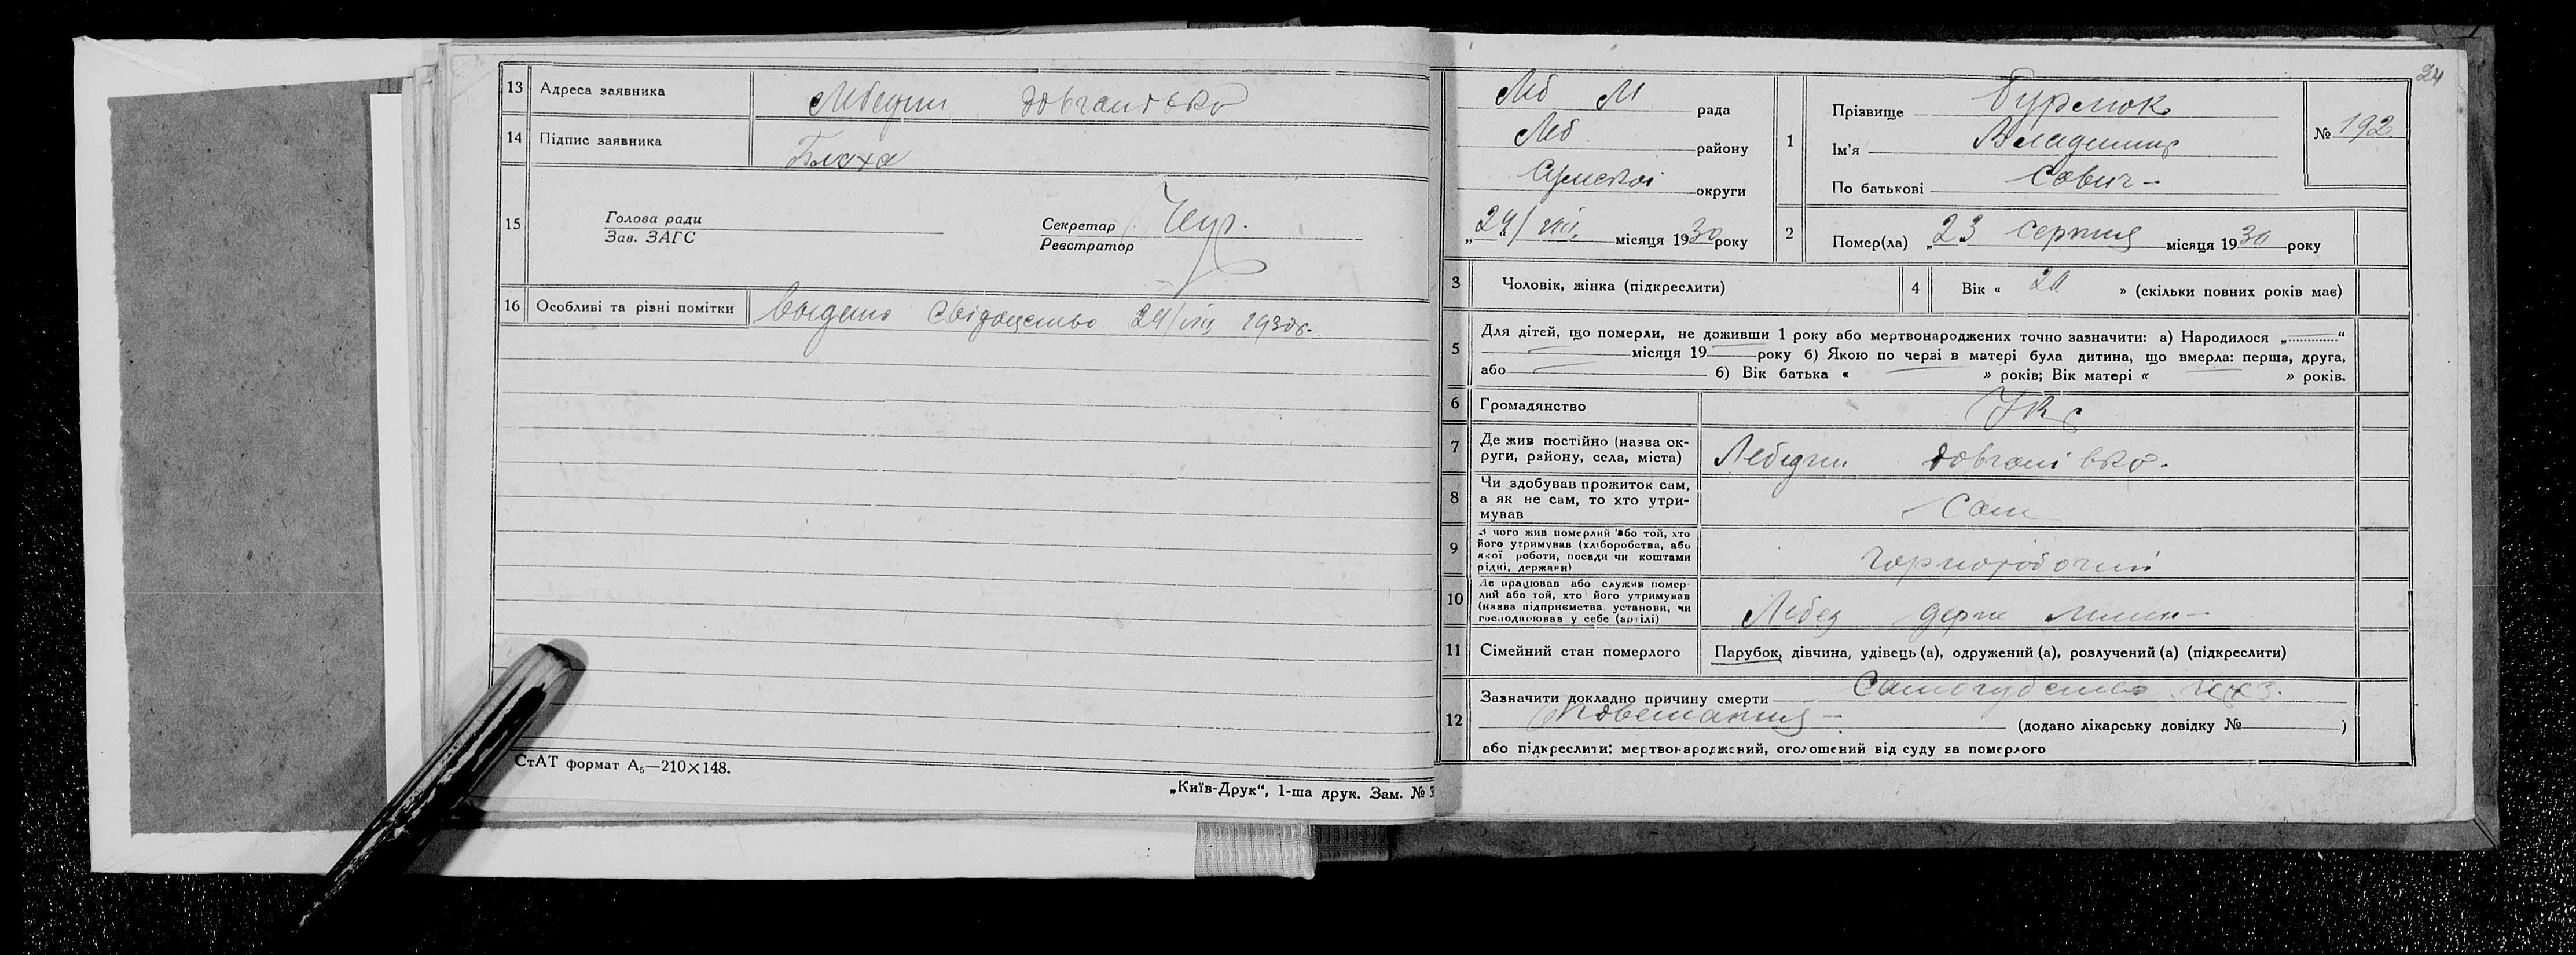 13 Адреса заявника Лебедин Довганівка
14 Підпис заявника Блоха
15 Голова ради
Зав. ЗАГС
Секретар
Реєстратор
16 Особливі та різні помітки выдано свідоцтво 24/VIII 1930 г.
СтАТ формат А5—210×148.
„Київ-Друк“, 1-ша друк. Зам. №
24
Леб М рада
Леб району
Сумської округи
„24/VIII місяця 1930 року
1 Прізвище Бурлюк
Ім'я Владимир
По батькові Савич
№ 192
2 Помер(ла) „23 серпня місяця 1930 року
3 Чоловік, жінка (підкреслити)
4 Вік « 20 » (скільки повних років має)
5 Для дітей, що померли, не доживши 1 року або мертвонароджених точно зазначити: а) Народилося „ “
місяця 19 року б) Якою по черзі в матері була дитина, що вмерла: перша, друга,
або б) Вік батька « » років; Вік матері « » років.
6 Громадянство Укр
7 Де жив постійно (назва ок-
руги, району, села, міста) Лебедин Довганівка.
8 Чи здобував прожиток сам,
а як не сам, то хто утри-
мував Сам
9 З чого жив померлий або той, хто
його утримував (хліборобства, або
якої роботи, посади чи коштами
рідні, держави) чорноробочий
10 Де працював або служив помер-
лий або той, хто його утримував
(назва підприємства установи, чи
господарював у себе (артілі) Лебед держ
11 Сімейний стан померлого Парубок, дівчина, удівець (а), одружений (а), розлучений (а) (підкреслити)
12 Зазначити докладно причину смерти Самогубство через
повешання (додано лікарську довідку № )
або підкреслити: мертвонароджений, оголошений від суду за померлого